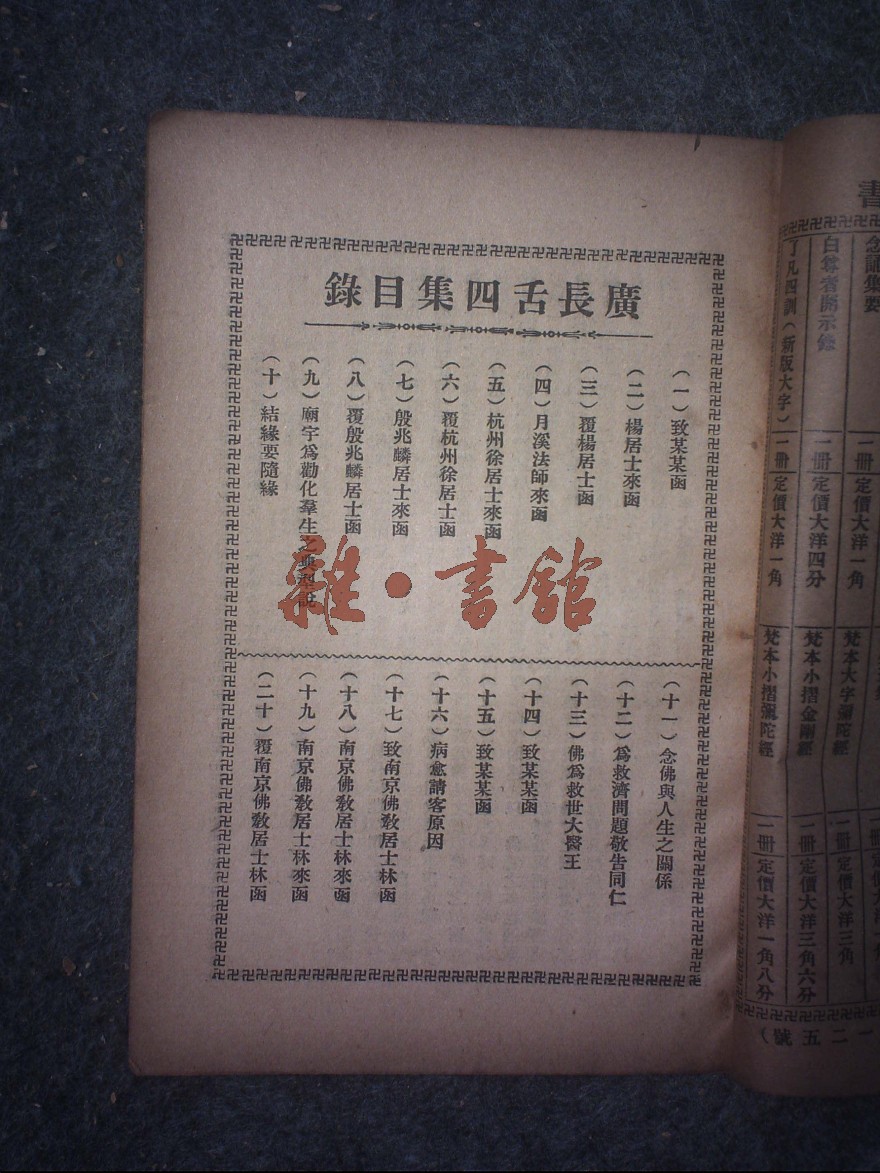 廣長舌四集目錄
（一）致某某函
（二）楊居士來函
（三）覆楊居士函
（四）月溪法師來函
（五）杭州徐居士來函
（六）覆杭州徐居士函
（七）殷兆麟居士來函
（八）覆殷兆麟居士函
（九）廟宇爲勸化羣生之典型說
（十）結緣要隨緣
（十一）念佛與人生之關係
（十二）爲救濟問題敬告同仁
（十三）佛爲救世大醫王
（十四）致某某函
（十五）致某某函
（十六）病愈請客原因
（十七）致南京佛敎居士林函
（十八）南京佛敎居士林來函
（十九）南京佛敎居士林來函
（二十）覆南京佛敎居士林函
雜·書館
書
念誦集要 一册 定價大洋一角
梵本大字彌陀經 一册 定價大洋三角
白尊者開示錄 一册 定價大洋四分
梵本小摺金剛經 一册 定價大洋三角六分
了凡四訓（新版大字） 一册 定價大洋一角
梵本小摺彌陀經 一册 定價大洋一角八分
一二五號）